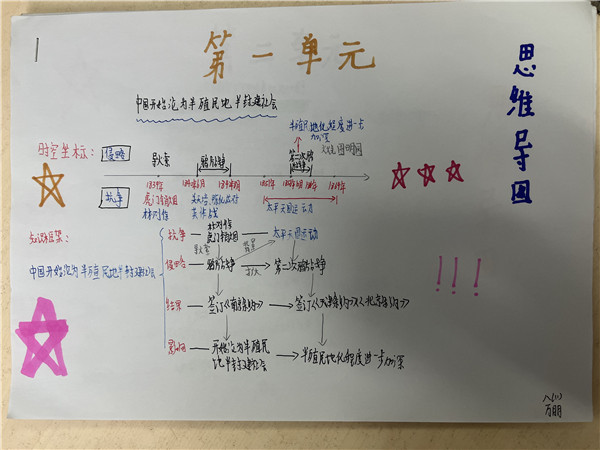 第一单元
思维导图
中国开始沦为半殖民地半封建社会
半殖民地化程度进一步
加深
火烧圆明园
时空坐标：
侵略
导火索
鸦片战争
第二次鸦
片战争
1839年
1840年6月
1842年8月
1851年
1856年10月
1860年
1864年
抗争
虎门销烟
林则徐
关天培、陈化成等
英勇战
太平天国运动
知识框架：
中国开始沦为半殖民地半封建社会
抗争
林则徐
虎门销烟
太平天国运动
导火索
侵略
鸦片战争
扩大
第二次鸦片战争
结果
签订《南京条约》
签订《天津条约》《北京条约》
影响
开始沦为半殖民
地半封建社会
半殖民地化程度进一步加深
！！！
八(1)
万朋